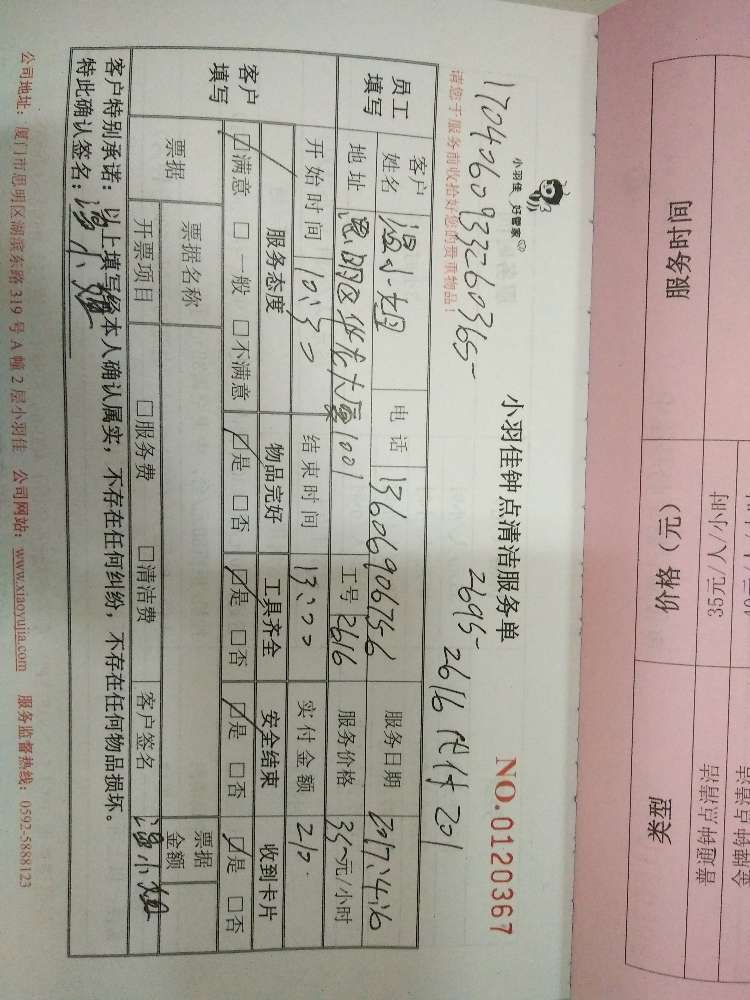 服务时间 价格（元） 类型
35元/人/小时 普通钟点清洁
金牌钟点清洁
小羽佳 好管家
小羽佳钟点清洁服务单
NO.0120367
请您于服务前收拾好您的贵重物品！
2616代付201
员工填写
客户姓名 温小姐 电话 13606906756 服务日期 2017.4.6
地址 思明区华龙大厦1001 工号 2616 服务价格 35元/小时
客户填写
开始时间 10:30 结束时间 13:00 实付金额 210.
服务态度 物品完好 工具齐全 安全结束 收到卡片
☑满意 □一般 □不满意 ☑是 □否 ☑是 □否 ☑是 □否 ☑是 □否
票据 票据名称 票据金额
开票项目 □服务费 □清洁费 客户签名 温小姐
客户特别承诺：以上填写经本人确认属实，不存在任何纠纷，不存在任何物品损坏。
特此确认签名：温小姐
公司地址：厦门市思明区湖滨东路319号A幢2层小羽佳 公司网站：www.xiaoyujia.com 服务监督热线：0592-5888123